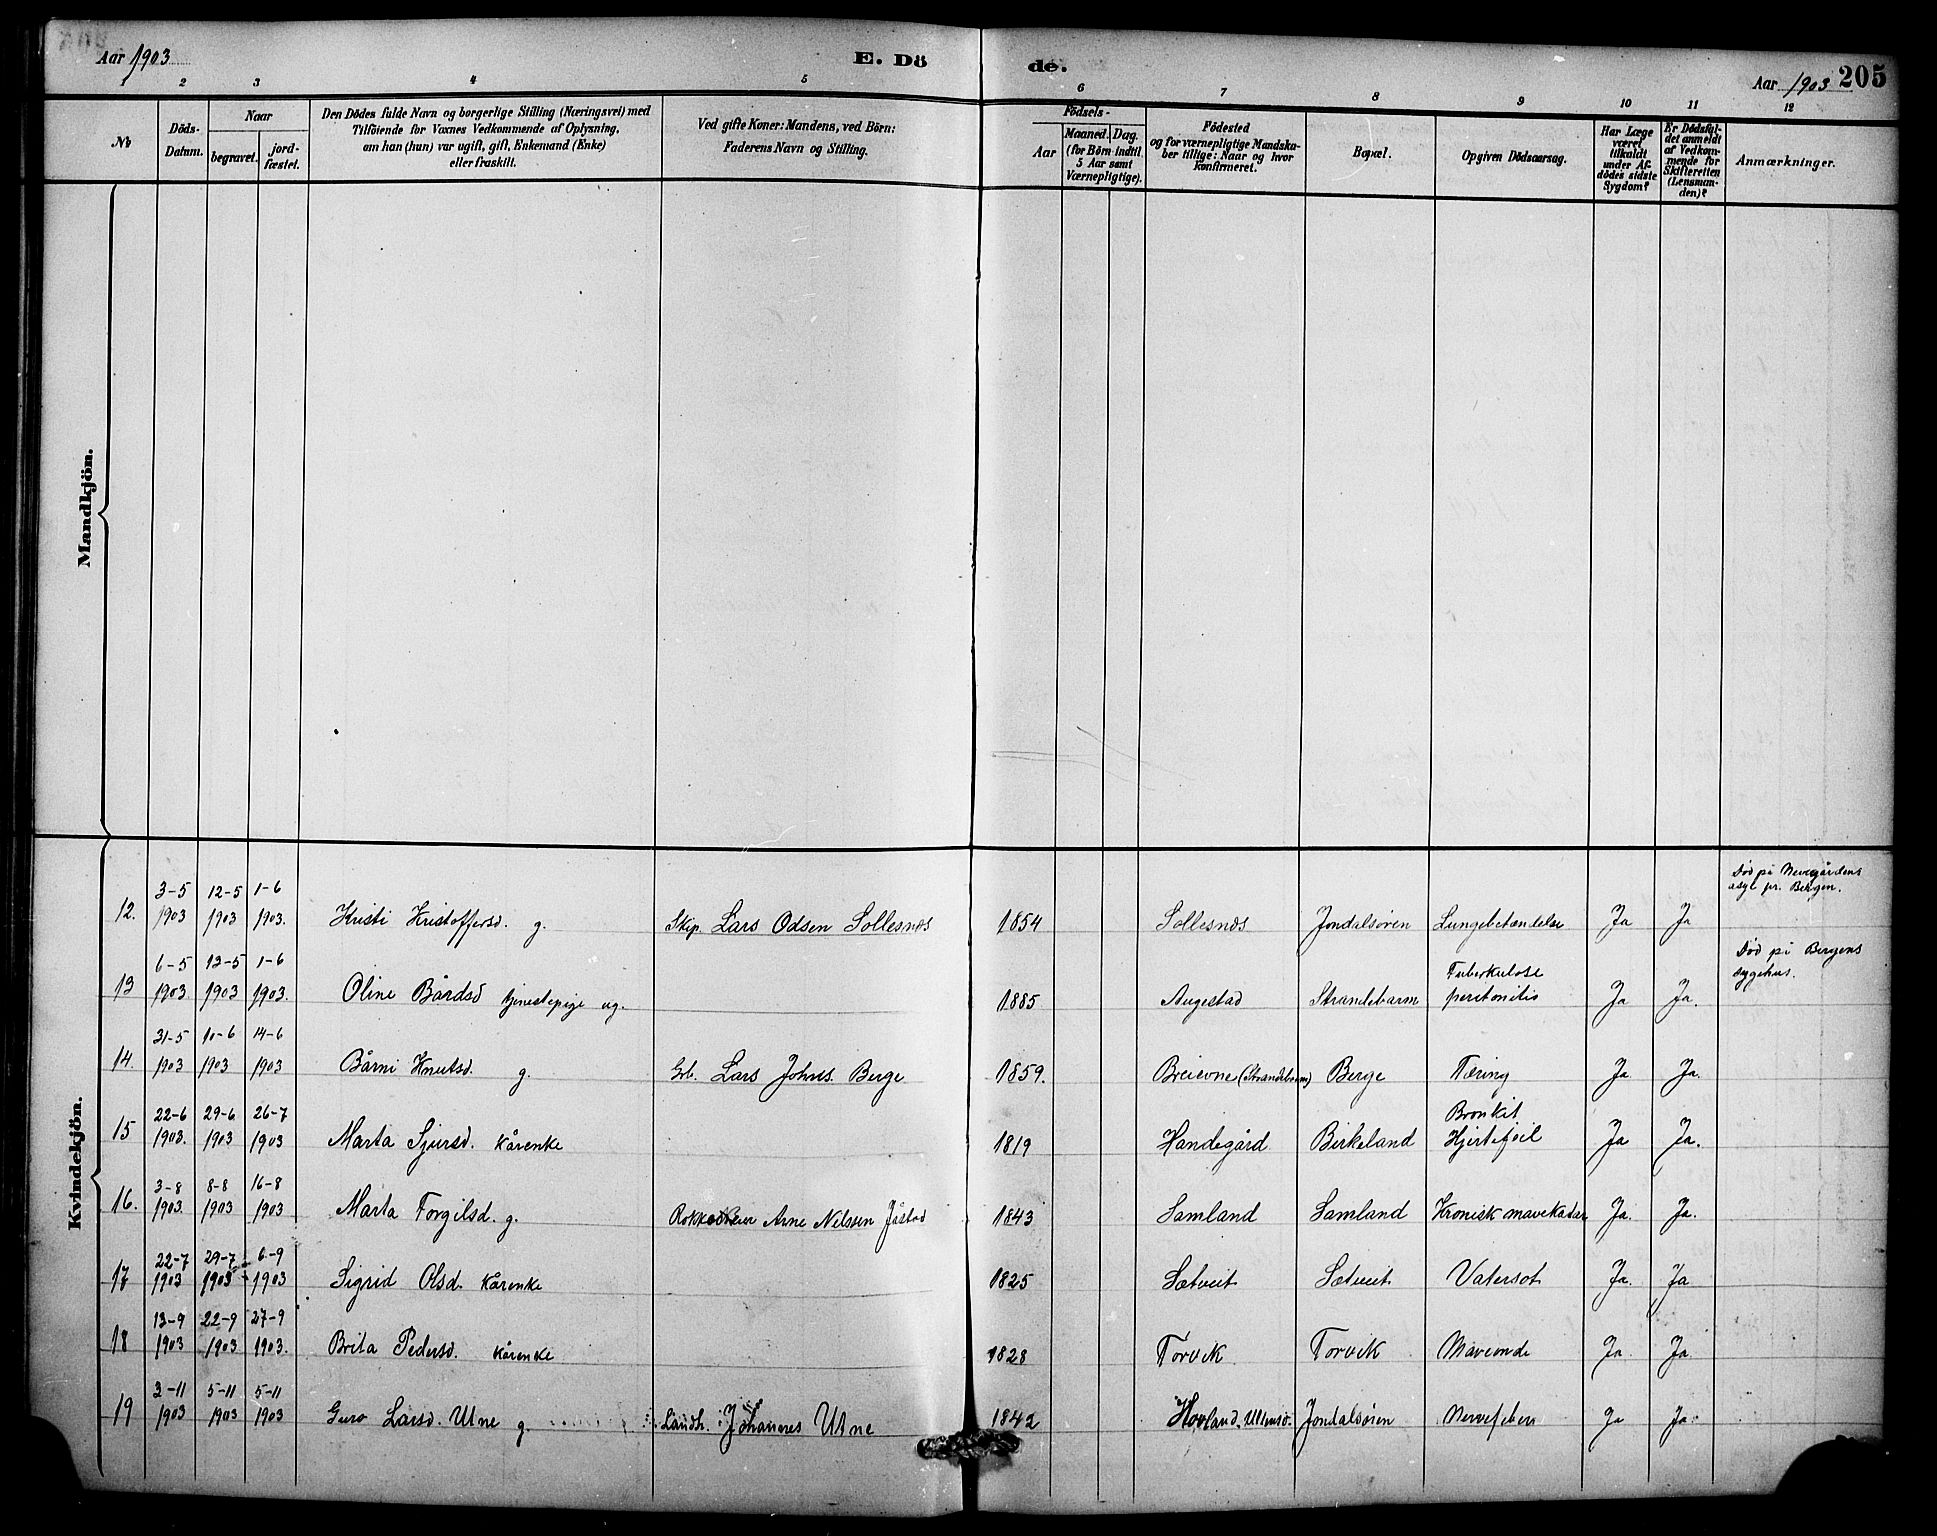 Aar 1903
E. Dö
de.
Aar 1903
205
1 2 3 4 5 6 7 8 9 10 11 12
No
Döds-
Datum.
Naar
begravet.
jord-
fæstet.
Den Dödes fulde Navn og borgerlige Stilling (Næringsvei) med
Tilföiende for Voxnes Vedkommende af Oplysning,
om han (hun) var ugift, gift, Enkemand (Enke)
eller fraskilt.
Ved gifte Koner: Mandens, ved Börn:
Faderens Navn og Stilling.
Födsels-
Aar
Maaned. Dag.
(for Börn indtil
5 Aar samt
Værnepligtige).
Födested
og for værnepligtige Mandska-
ber tillige: Naar og hvor
konfirmeret.
Bopæl.
Opgiven Dödsaarsag.
Har Læge
været
tilkaldt
under Af-
dödes sidste
Sygdom?
Er Dödsfal-
det anmeldt
af Vedkom-
mende for
Skifteretten
(Lensman-
den)?
Anmærkninger.
Mandkjön.
Kvindekjön.
3-5 12-5 1-6 Död på Nevegårdens
asyl pr. Bergen.
12. 1903 1903 1903. Kristi Kristoffersd. g. Skip. Lars Odsen Sollesnæs 1854 Sollesnæs Jondalsøren Lungebetændelse Ja Ja
6-5 13-5 1-6 Tuberkuløse Död på Bergens
sygehus.
13 1903. 1903 1903. Oline Bårdsd tjenestepige ug. 1885 Augestad Strandebarm peritonitis Ja Ja.
31-5 10-6 14-6
14. 1903 1903 1903 Bårni Knutsd. g. Grb. Lars Johns. Berge 1859. Breievne (Strandebarm) Berge Tæring Ja Ja.
22-6 29-6 26-7 Bronkit
15 1903. 1903 1903 Marta Sjursd. Kårenke 1819 Handegård Birkeland Hjertefeil Ja Ja.
3-8 8-8 16-8
16. 1903. 1903 1903 Marta Torgilsd. g. Arne Nilssen Jåstad 1843 Samland Samland Kronisk mavekatar Ja. Ja.
22-7 29-7 6-9
17 1903 1903 1903 Sigrid Olsd. Kårenke 1825 Sætveit Sætveit Vatersot Ja. Ja
13-9 22-9 27-9
18 1903 1903 1903. Brita Pedersd. Kårenke 1828 Torvik Torvik Maveonde Ja. Ja.
2-11 5-11 5-11
19 1903 1903 1903 Guro Larsd. Utne g. Landh. Johannes Utne 1842 Hovland, Ullensv. Jondalsøren Nervefeber Ja Ja.